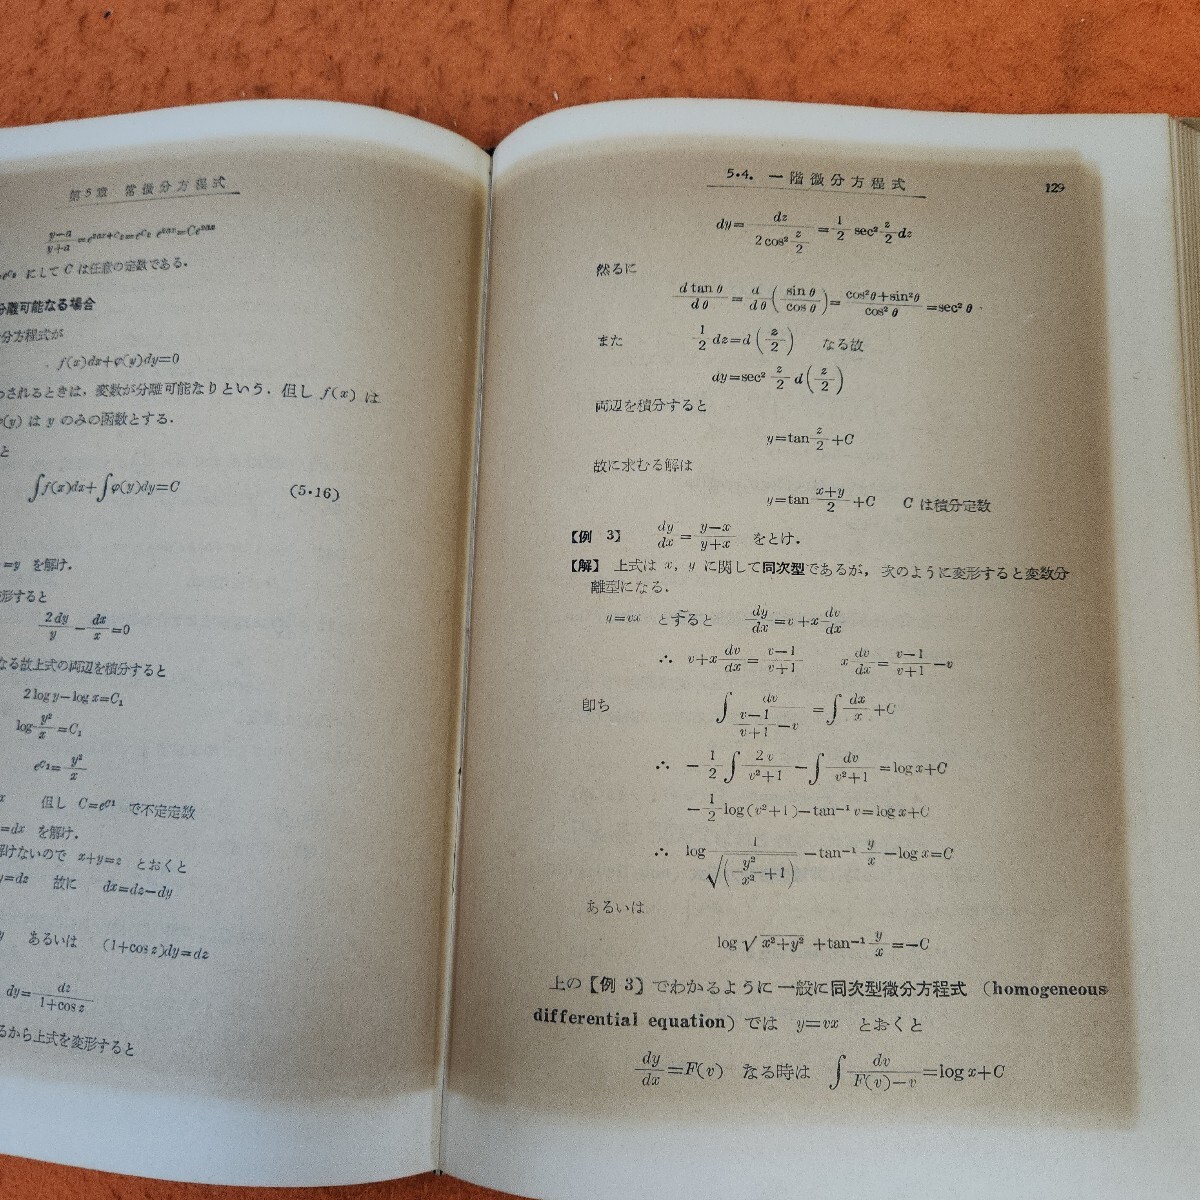 第5章 常微分方程式
(y-a)/(y+a)=e^{2ax+C₂}=e^{C₂} e^{2ax}=Ce^{2ax}
e^{C₂} にして C は任意の定数である.
分離可能なる場合
分方程式が
f(x)dx+φ(y)dy=0
わされるときは, 変数が分離可能なりという. 但し f(x) は
φ(y) は y のみの函数とする.
と
∫f(x)dx+∫φ(y)dy=C (5·16)
=y を解け.
形すると
2dy/y - dx/x =0
なる故上式の両辺を積分すると
2 log y-log x=C₁
log y²/x =C₁
e^{C₁}= y²/x
x 但し C=e^{C₁} で不定定数
=dx を解け.
解けないので x+y=z とおくと
y=dz 故に dx=dz-dy
y あるいは (1+cos z)dy=dz
dy= dz/(1+cos z)
るから上式を変形すると
5·4. 一階微分方程式 129
dy= dz/(2 cos² z/2) = 1/2 sec² z/2 dz
然るに
d tan θ/dθ = d/dθ (sin θ/cos θ)= (cos²θ+sin²θ)/cos² θ =sec² θ
また 1/2 dz=d (z/2) なる故
dy=sec² z/2 d(z/2)
両辺を積分すると
y=tan z/2 +C
故に求むる解は
y=tan (x+y)/2 +C C は積分定数
【例 3】 dy/dx = (y-x)/(y+x) をとけ.
【解】 上式は x, y に関して同次型であるが, 次のように変形すると変数分
離型になる.
y=vx とすると dy/dx =v+x dv/dx
∴ v+x dv/dx = (v-1)/(v+1) x dv/dx = (v-1)/(v+1) -v
即ち ∫ dv/((v-1)/(v+1) -v) =∫ dx/x +C
∴ - 1/2 ∫ 2v/(v²+1) -∫ dv/(v²+1) =log x+C
- 1/2 log (v²+1)-tan⁻¹ v=log x+C
∴ log 1/√(y²/x² +1) -tan⁻¹ y/x -log x=C
あるいは
log √x²+y² +tan⁻¹ y/x =-C
上の【例 3】でわかるように一般に同次型微分方程式 (homogeneous
differential equation) では y=vx とおくと
dy/dx =F(v) なる時は ∫ dv/(F(v)-v) =log x+C